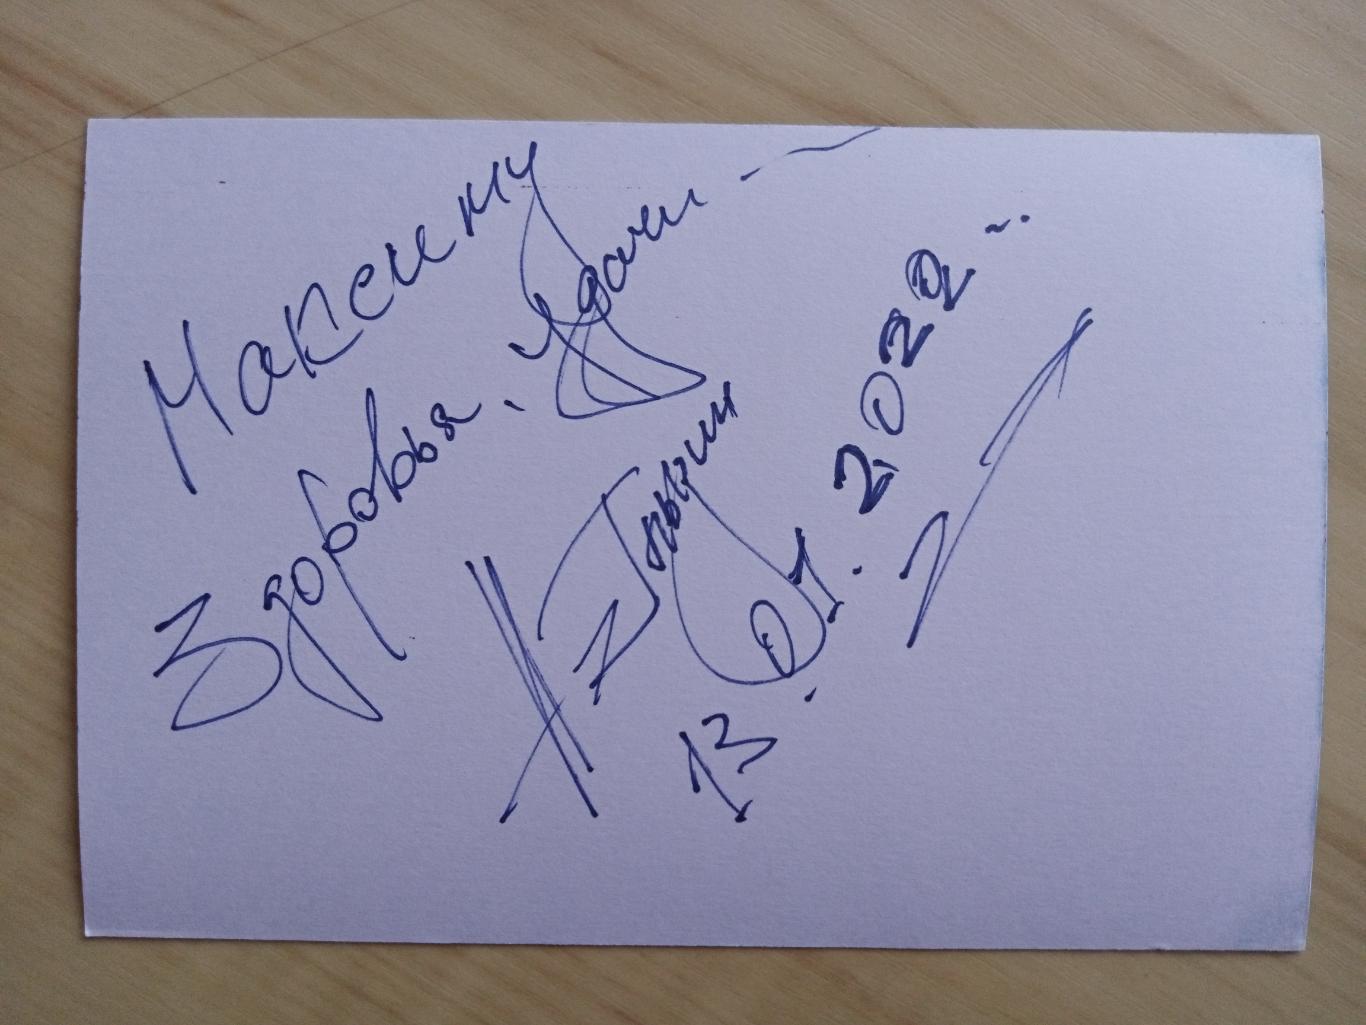 Максиму
Здоровья. Удачи -
13.01.2022